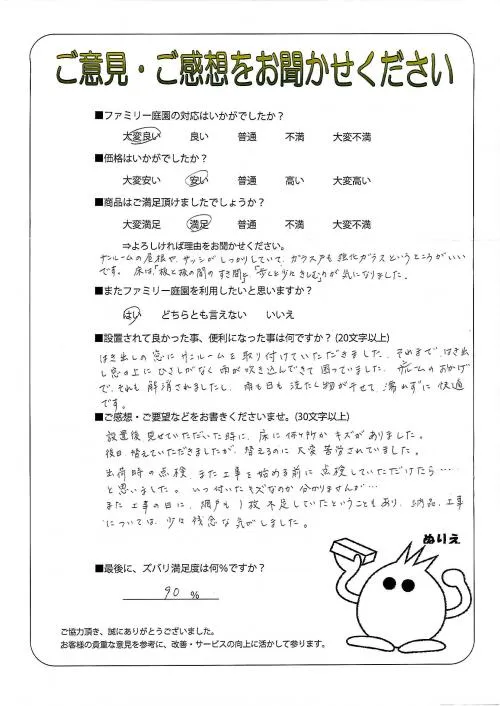 ご意見・ご感想をお聞かせください
■ファミリー庭園の対応はいかがでしたか？
大変良い 良い 普通 不満 大変不満
■価格はいかがでしたか？
大変安い 安い 普通 高い 大変高い
■商品はご満足頂けましたでしょうか？
大変満足 満足 普通 不満 大変不満
⇒よろしければ理由をお聞かせください。
サンルームの屋根や、サッシがしっかりしていて、ガラス戸も強化ガラスというところがいい
です。床は、「板と板の間のすき間」と「歩くと少々きしむ」のが気になりました。
■またファミリー庭園を利用したいと思いますか？
はい どちらとも言えない いいえ
■設置されて良かった事、便利になった事は何ですか？(20文字以上)
はき出しの窓にサンルームを取り付けていただきました。それまで、はき出
し窓の上にひさしがなく雨が吹き込んできて困っていました。サンルームのおかげ
で、それも解消されましたし、雨も日も洗たく物が干せて、濡れずに快適
です。
■ご感想・ご要望などをお書きくださいませ。(30文字以上)
設置後見せていただいた時に、床に何ヶ所かキズがありました。
後日替えていただきましたが、替えるのに大変苦労されていました。
出荷時の点検、また工事を始める前に点検していただけたら…
と思いました。いつ付いたキズなのか分かりませんが…
また工事の日に、網戸も1枚不足していたということもあり、納品、工事
については、少々残念な気がしました。
ぬりえ
■最後に、ズバリ満足度は何％ですか？
90 ％
ご協力頂き、誠にありがとうございました。
お客様の貴重な意見を参考に、改善・サービスの向上に活かして参ります。